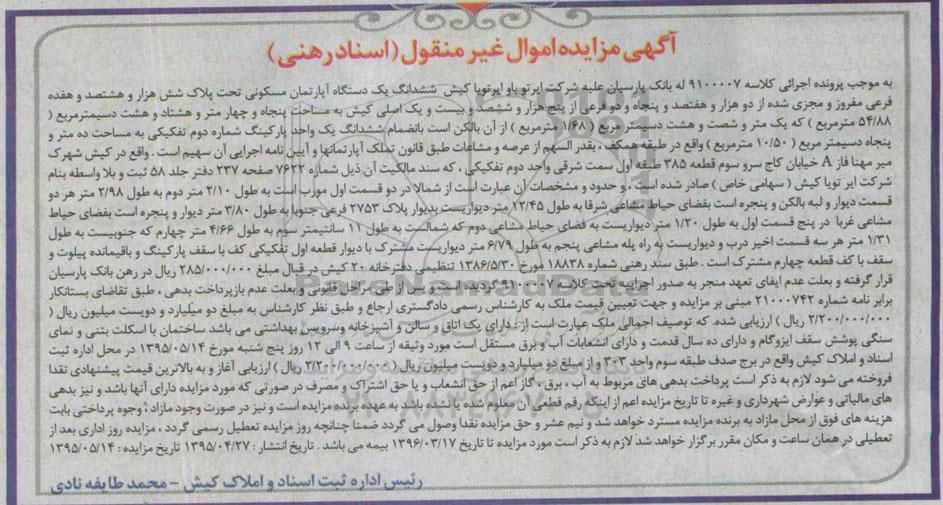 آگهی مزایده اموال غیر منقول (اسناد رهنی)
به موجب پرونده اجرائی کلاسه ۹۱۰۰۰۰۷ له بانک پارسیان علیه شرکت ایرتویا و ایرتویا کیش ششدانگ یک دستگاه آپارتمان مسکونی تحت پلاک شش هزار و هشتصد و هفده
فرعی مفروز و مجزی شده از دو هزار و هفتصد و پنجاه و دو فرعی از پنج هزار و ششصد و بیست و یک اصلی کیش به مساحت پنجاه و چهار متر و هشتاد و هشت دسیمترمربع (
۵۴/۸۸ مترمربع ) که یک متر و شصت و هشت دسیمتر مربع ( ۱/۶۸ مترمربع ) از آن بالکن است بانضمام ششدانگ یک واحد پارکینگ شماره دوم تفکیکی به مساحت ده متر و
پنجاه دسیمتر مربع ( ۱۰/۵۰ مترمربع ) واقع در طبقه همکف ، بقدر السهم از عرصه و مشاعات طبق قانون تملک آپارتمانها و آیین نامه اجرایی آن سهیم است . واقع در کیش شهرک
میر مهنا فاز A خیابان کاج سرو سوم قطعه ۳۸۵ طبقه اول سمت شرقی واحد دوم تفکیکی ، که سند مالکیت آن ذیل شماره ۷۶۲۲ صفحه ۲۳۷ دفتر جلد ۵۸ ثبت و بلا واسطه بنام
شرکت ایر تویا کیش ( سهامی خاص ) صادر شده است ، و حدود و مشخصات آن عبارت است از شمالا در دو قسمت اول مورب است به طول ۲/۱۰ متر دوم به طول ۲/۹۸ متر هر دو
قسمت دیوار و لبه بالکن و پنجره است بفضای حیاط مشاعی شرقا به طول ۱۲/۴۵ متر دیواریست بدیوار پلاک ۲۷۵۳ فرعی جنوبا به طول ۳/۸۰ متر دیوار و پنجره است بفضای حیاط
مشاعی غربا در پنج قسمت اول به طول ۱/۲۰ متر دیواریست به فضای حیاط مشاعی دوم که شمالست به طول ۱۱ سانتیمتر سوم به طول ۴/۶۶ متر چهارم که جنوبیست به طول
۱/۳۱ متر هر سه قسمت اخیر درب و دیواریست به راه پله مشاعی پنجم به طول ۶/۷۹ متر دیواریست مشترک با دیوار قطعه اول تفکیکی کف با سقف پارکینگ و باقیمانده پیلوت و
سقف با کف قطعه چهارم مشترک است . طبق سند رهنی شماره ۱۸۸۳۸ مورخ ۱۳۸۶/۵/۳۰ تنظیمی دفترخانه ۲۰ کیش در قبال مبلغ ۲۸۵/۰۰۰/۰۰۰ ریال در رهن بانک پارسیان
قرار گرفته و بعلت عدم ایفای تعهد منجر به صدور اجراییه تحت کلاسه ۹۱۰۰۰۰۷ گردیده است و پس از طی مراحل قانونی و بعلت عدم بازپرداخت بدهی ، طبق تقاضای بستانکار
برابر نامه شماره ۲۱۰۰۰۷۴۲ مبنی بر مزایده و جهت تعیین قیمت ملک به کارشناس رسمی دادگستری ارجاع و طبق نظر کارشناس به مبلغ دو میلیارد و دویست میلیون ریال (
۲/۲۰۰/۰۰۰/۰۰۰ ریال ) ارزیابی شده. که توصیف اجمالی ملک عبارت است از : دارای یک اتاق و سالن و آشپزخانه وسرویس بهداشتی می باشد ساختمان با اسکلت بتنی و نمای
سنگی پوشش سقف ایزوگام و دارای ده سال قدمت و دارای انشعابات آب و برق مستقل است مورد وثیقه از ساعت ۹ الی ۱۲ روز پنج شنبه مورخ ۱۳۹۵/۰۵/۱۴ در محل اداره ثبت
اسناد و املاک کیش واقع در برج صدف طبقه سوم واحد ۳۰۳ و از مبلغ دو میلیارد و دویست میلیون ریال ( ۲/۲۰۰/۰۰۰/۰۰۰ ریال ) ارزیابی آغاز و به بالاترین قیمت پیشنهادی نقدا
فروخته می شود لازم به ذکر است پرداخت بدهی های مربوط به آب ، برق ، گاز اعم از حق انشعاب و یا حق اشتراک و مصرف در صورتی که مورد مزایده دارای آنها باشد و نیز بدهی
های مالیاتی و عوارض شهرداری و غیره تا تاریخ مزایده اعم از اینکه رقم قطعی آن معلوم شده یا نشده باشد به عهده برنده مزایده است و نیز در صورت وجود مازاد ؛ وجوه پرداختی بابت
هزینه های فوق از محل مازاد به برنده مزایده مسترد خواهد شد و نیم عشر و حق مزایده نقدا وصول می گردد ضمنا چنانچه روز مزایده تعطیل رسمی گردد ، مزایده روز اداری بعد از
تعطیلی در همان ساعت و مکان مقرر برگزار خواهد شد لازم به ذکر است مورد مزایده تا تاریخ ۱۳۹۶/۰۳/۱۷ بیمه می باشد . تاریخ انتشار : ۱۳۹۵/۰۴/۲۷ تاریخ مزایده : ۱۳۹۵/۰۵/۱۴
رئیس اداره ثبت اسناد و املاک کیش - محمد طایفه نادی